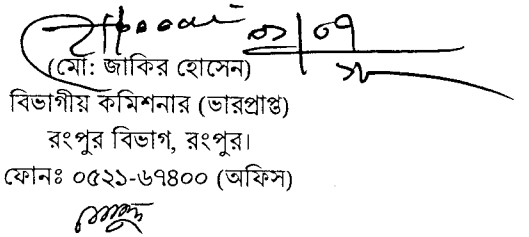 ০১/০৭
(মো: জাকির হোসেন)
বিভাগীয় কমিশনার (ভারপ্রাপ্ত)
রংপুর বিভাগ, রংপুর।
ফোনঃ ০৫২১-৬৭৪০০ (অফিস)